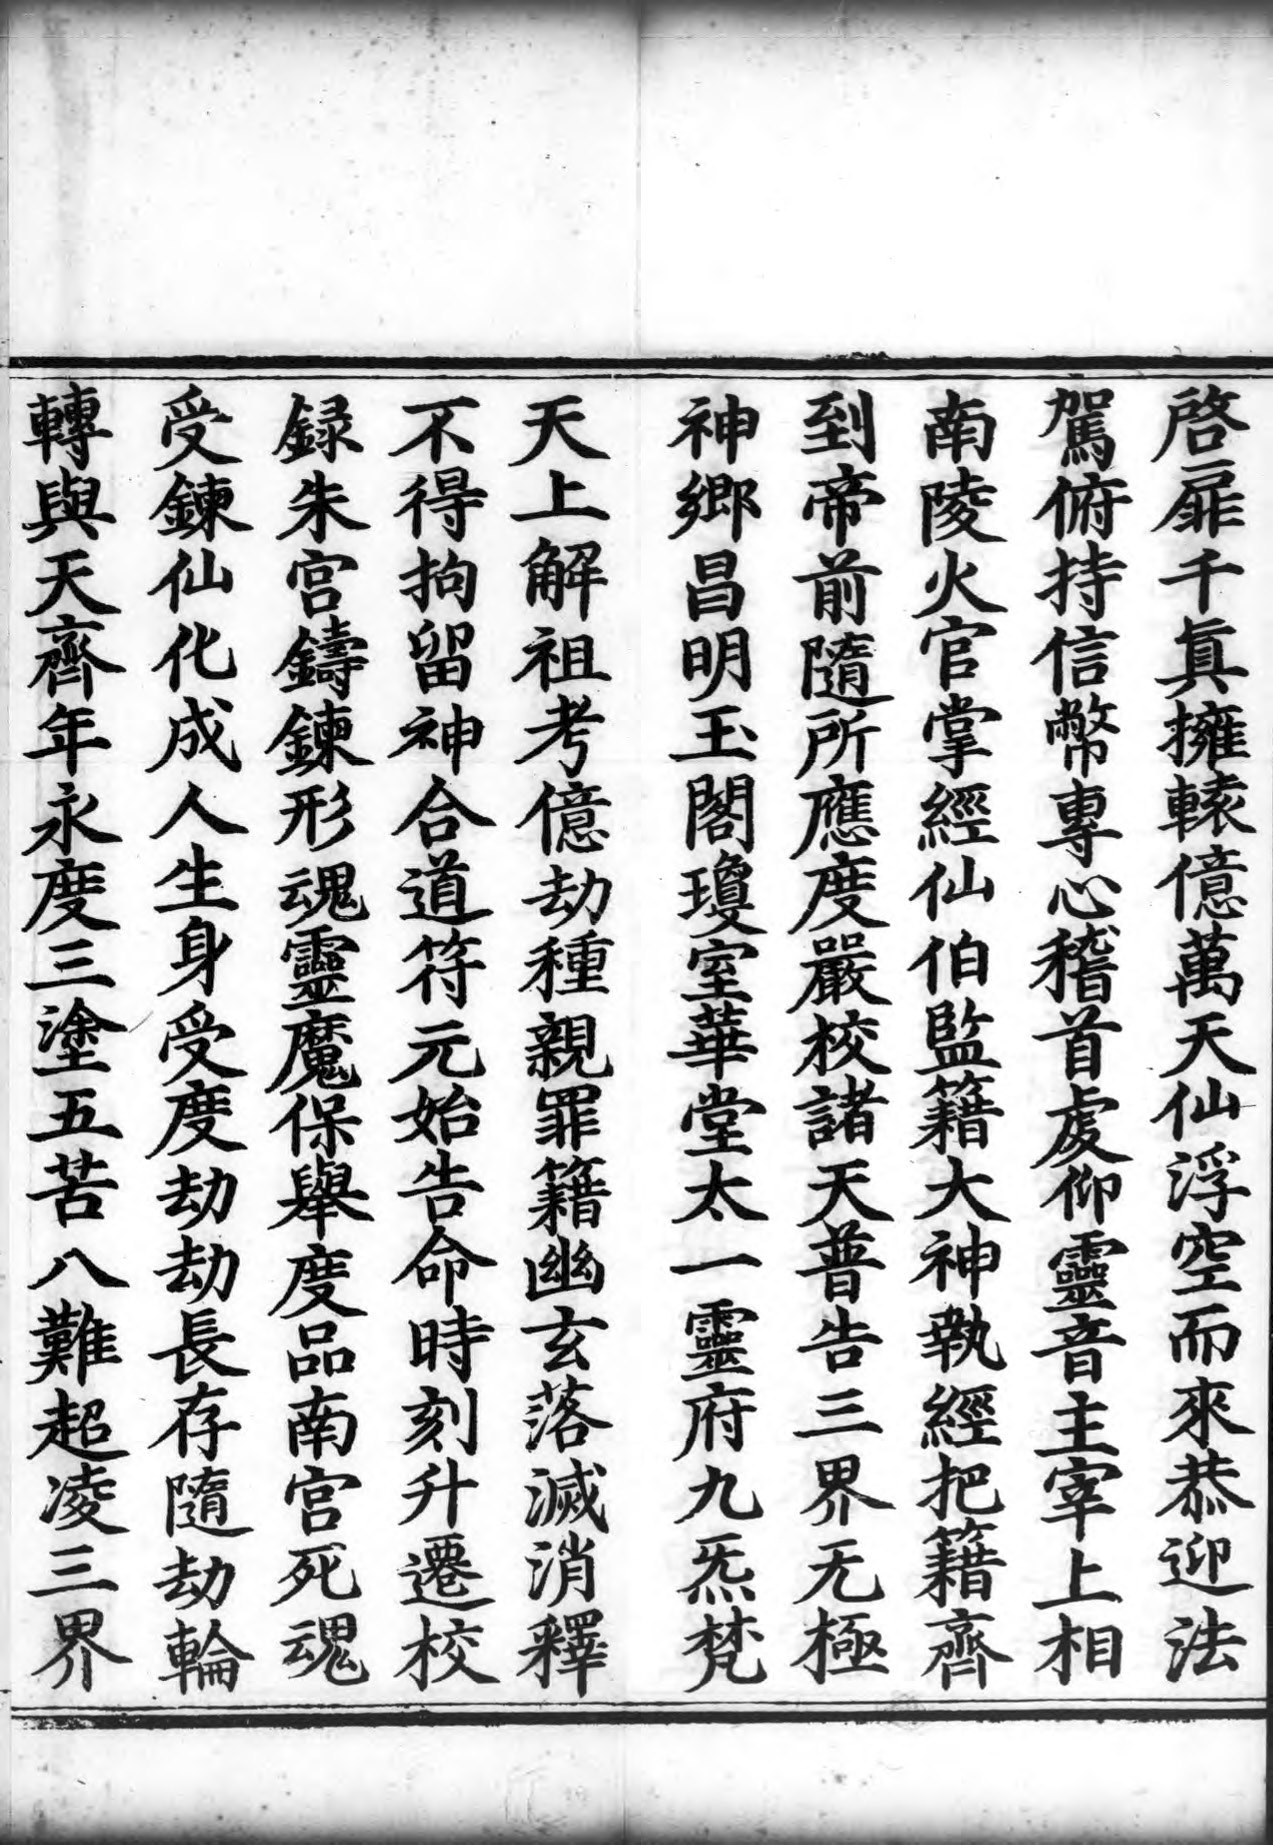 啓扉千真擁轅億萬天仙浮空而來恭迎法
駕俯持信幣專心稽首處仰靈音主宰上相
南陵火官掌經仙伯監籍大神執經把籍齊
到帝前隨所應度嚴校諸天普告三界无極
神鄉昌明玉閣瓊室華堂太一靈府九炁梵
天上解祖考億劫種親罪籍幽玄落滅消釋
不得拘留神合道符元始告命時刻升遷校
録朱宮鑄鍊形魂靈魔保舉度品南宮死魂
受鍊仙化成人生身受度劫劫長存隨劫輪
轉與天齊年永度三塗五苦八難超凌三界